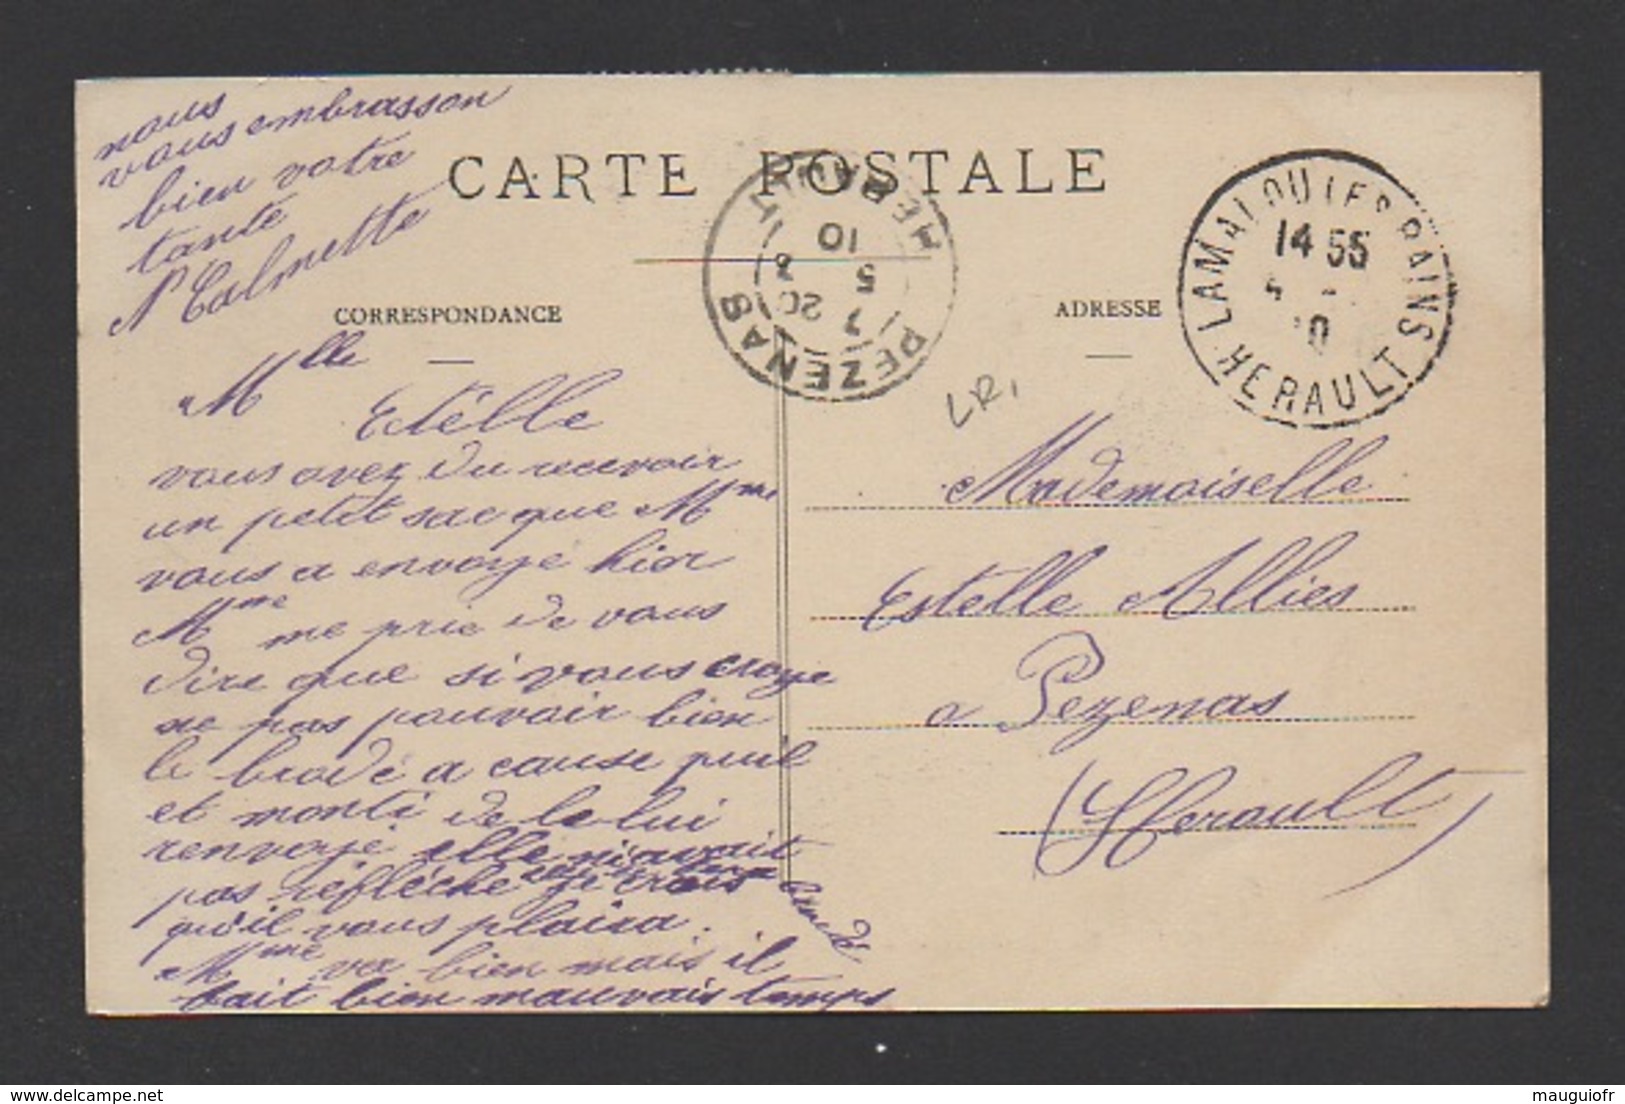 CARTE POSTALE
CORRESPONDANCE
ADRESSE
LAMALOU LES BAINS
14 55
HERAULT
PEZENAS
HERAULT
7
20
5 3
10
LR,
Mlle
Estélle
vous avez du recevoir
un petit sac que Mme
vous a envoyé hier
Mme me prie de vous
dire que si vous croye
ne pas pouvoir bien
le brodé a cause
et monti de le lui
renvoyé elle n'avait
pas réfléche je crois
qu'il vous plaira.
Mme va bien mais il
fait bien mauvais temps
nous
vous embrasson
bien votre
tante
Calmette
Mademoiselle
Estelle Allies
a Pezenas
(Herault)
delcampe.net
mauguiofr